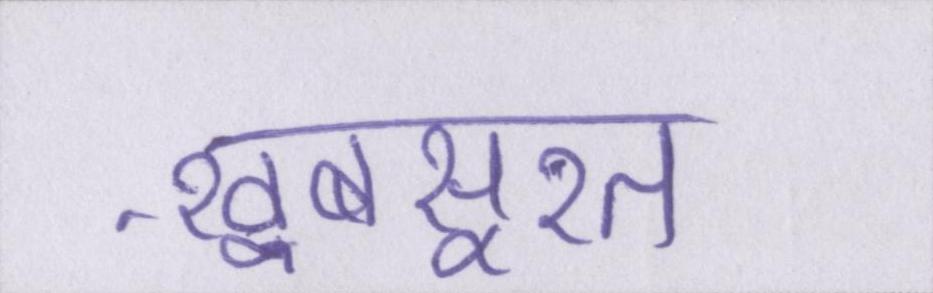 खूबसूरत